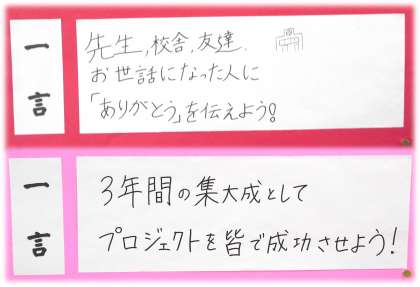 一言
先生,校舎,友達.
お世話になった人に
「ありがとう」を伝えよう!
一言
3年間の集大成として
プロジェクトを皆で成功させよう!